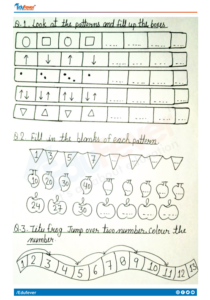 Edufever
Q.1. Look at the patterns and fill up the boxes.
Q.2. Fill in the blanks of each pattern
1 3 5 7
10 20 30 40
24 27 30
Q.3. Tity frog Jump over two number. Colour the
number
1 2 3 4 5 6 7 8 9 10 11 12 13
/Edufever